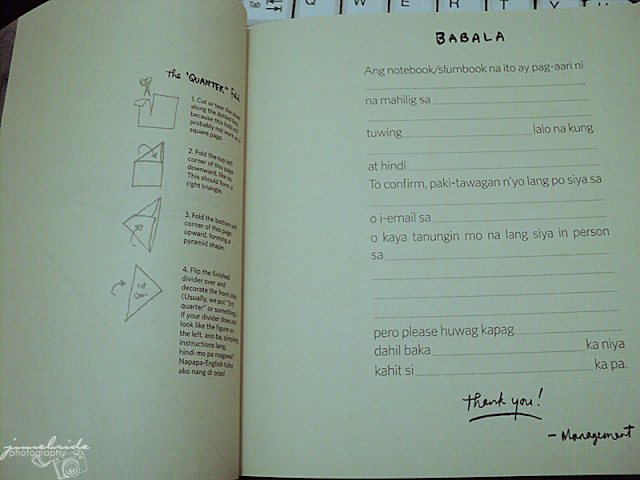 Tab Q W E R T Y
the "QUARTER" fold
1. Cut or tear the sheet
along the dotted line,
because this fold will
probably not work on a
square page.
2. Fold the top left
corner of this page
downward, like so.
This should form a
right triangle.
3. Fold the bottom left
corner of this page
upward, forming a
pyramid shape.
4. Flip the finished
divider over and
decorate the front side.
(Usually, we put "1st
quarter" or something.)
If your divider does not
look like the figure on
the left, ano ba, simpleng
instructions lang,
hindi mo pa magawa?
Napapa-English tuloy
ako nang di oras!
1st
Qtr
BABALA
Ang notebook/slumbook na ito ay pag-aari ni
na mahilig sa
tuwing lalo na kung
at hindi
To confirm, paki-tawagan n'yo lang po siya sa
o i-email sa
o kaya tanungin mo na lang siya in person
sa
pero please huwag kapag
dahil baka ka niya
kahit si ka pa.
thank you!
- Management
jimebride
photography